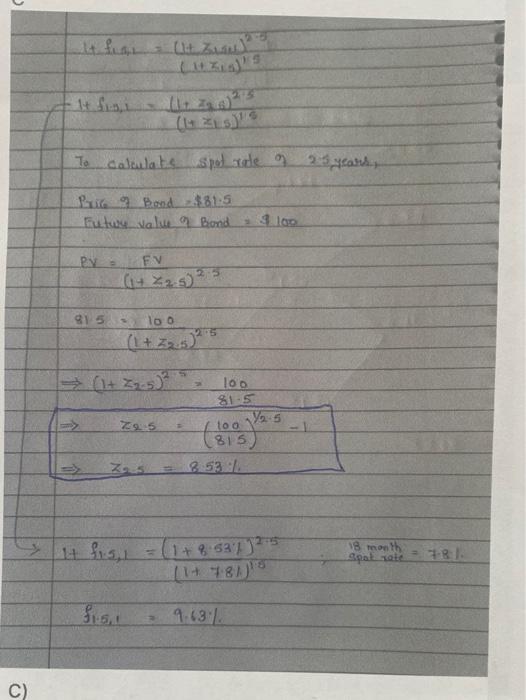 1+ f1.5,1 = (1+ Z1.5+1)^2.5
(1+Z1.5)^1.5
1+ f1.5,1 = (1+ Z2.5)^2.5
(1+ Z1.5)^1.5
To calculate spot rate of 2.5 years,
Price of Bond = $81.5
Future value of Bond = $100
PV = FV
(1+ Z2.5)^2.5
81.5 = 100
(1+ Z2.5)^2.5
⇒ (1+ Z2.5)^2.5 = 100
81.5
⇒ Z2.5 = (100
81.5)^1/2.5 -1
⇒ Z2.5 = 8.53%
1+ f1.5,1 = (1+8.53%)^2.5 ; 18 month spot rate = 7.8%
(1+ 7.8%)^1.5
f1.5,1 = 9.63%
C)